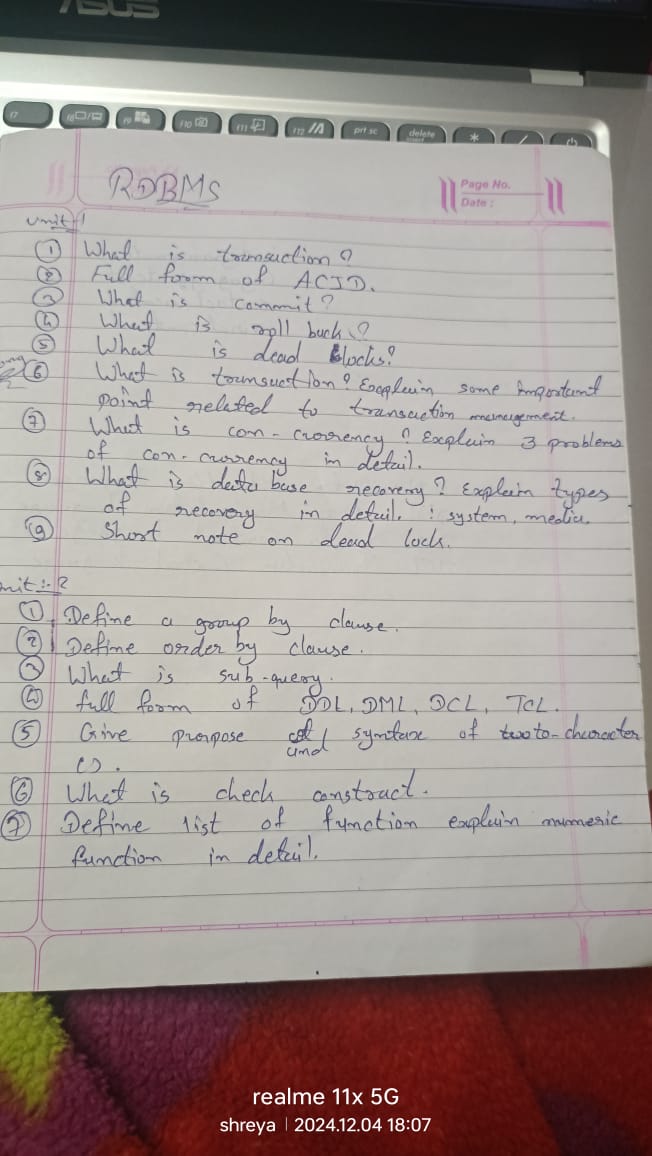 ASUS
F7
F8
F9
F10
F11
F12
prt sc
delete
insert
RDBMS
Page No.
Date :
Unit 1
① What is transaction ?
② Full form of ACID.
③ What is commit?
④ What is roll back ?
⑤ What is dead locks?
⑥ What is transuction ? Explain some important
point related to transaction management.
⑦ What is con-currency ? Explain 3 problems
of con-currency in detail.
⑧ What is data base recovery ? Explain types
of recovery in detail. : system, media.
⑨ Short note on dead lock.
nit :- 2
① Define a group by clause.
② Define order by clause.
③ What is sub-query.
④ full form of DDL, DML, DCL, TCL.
⑤ Give prupose and syntax of to-character
( ).
⑥ What is check constract.
⑦ Define list of function explain numeric
function in detail.
realme 11x 5G
shreya | 2024.12.04 18:07